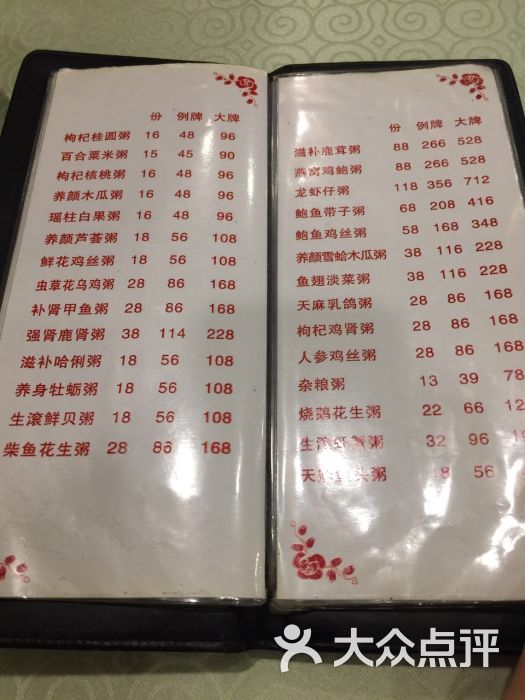 份 例牌 大牌
枸杞桂圆粥 16 48 96
百合粟米粥 15 45 90
枸杞核桃粥 16 48 96
养颜木瓜粥 16 48 96
瑶柱白果粥 16 48 96
养颜芦荟粥 18 56 108
鲜花鸡丝粥 18 56 108
虫草花乌鸡粥 28 86 168
补肾甲鱼粥 28 86 168
强肾鹿肾粥 38 114 228
滋补哈俐粥 18 56 108
养身牡蛎粥 18 56 108
生滚鲜贝粥 18 56 108
柴鱼花生粥 28 86 168
份 例牌 大牌
滋补鹿茸粥 88 266 528
燕窝鸡鲍粥 88 266 528
龙虾仔粥 118 356 712
鲍鱼带子粥 68 208 416
鲍鱼鸡丝粥 58 168 348
养颜雪蛤木瓜粥 38 116 228
鱼翅淡菜粥 38 116 228
天麻乳鸽粥 28 86 168
枸杞鸡肾粥 28 86 168
人参鸡丝粥 28 86 168
杂粮粥 13 39 78
烧鹅花生粥 22 66
生滚 粥 32 96
天麻 头粥 18 56
大众点评